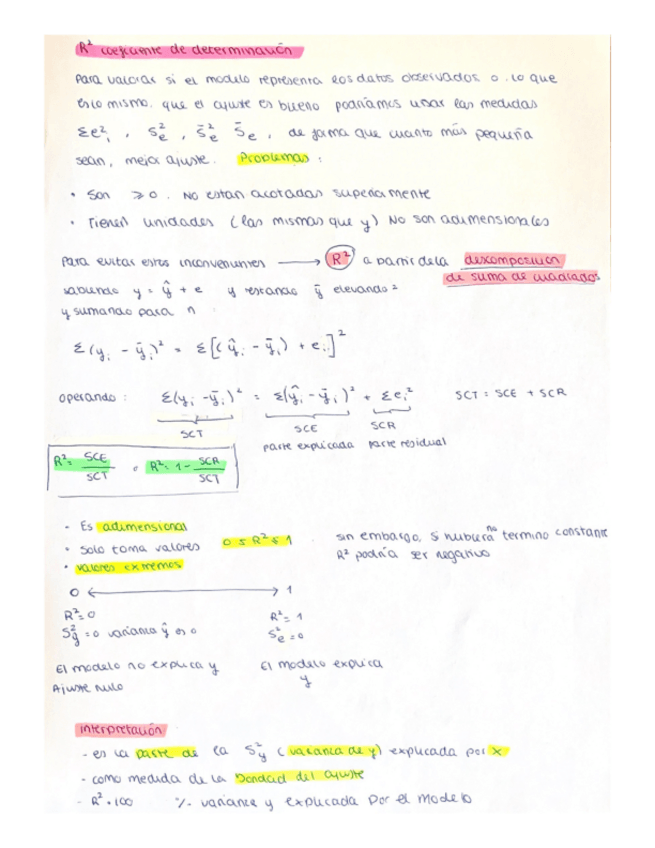 R² coeficiente de determinación
Para valorar si el modelo representa los datos observados o lo que
es lo mismo, que el ajuste es bueno podríamos usar las medidas
Σe²ᵢ , S²ₑ , S̄²ₑ S̄ₑ , de forma que cuanto más pequeña
sean, mejor ajuste. Problemas :
· Son ⩾ 0. No estan acotadas superiormente
· Tienen unidades (las mismas que y) No son adimensionales
Para evitar estos inconvenientes ⟶ R² a partir de la descomposición
de suma de cuadrados
sabiendo y = ŷ + e y restando ȳ elevando ²
y sumando para n
Σ(yᵢ - ȳᵢ)² = Σ[(ŷᵢ - ȳᵢ) + eᵢ]²
operando : Σ(yᵢ - ȳᵢ)² = Σ(ŷᵢ - ȳᵢ)² + Σeᵢ² SCT = SCE + SCR
SCT SCE SCR
parte explicada parte residual
R² = SCE/SCT o R² = 1 - SCR/SCT
· Es adimensional
· Solo toma valores 0 ≤ R² ≤ 1
· valores extremos
sin embargo, si hubiera no termino constante
R² podría ser negativo
0 ⟷ 1
R² = 0 R² = 1
S²ŷ = 0 varianza ŷ es 0 S²ₑ = 0
El modelo no explica y El modelo explica
Ajuste nulo y
interpretación
- es la parte de la S²y (varianza de y) explicada por x
- como medida de la bondad del ajuste
- R² · 100 % varianza y explicada por el modelo